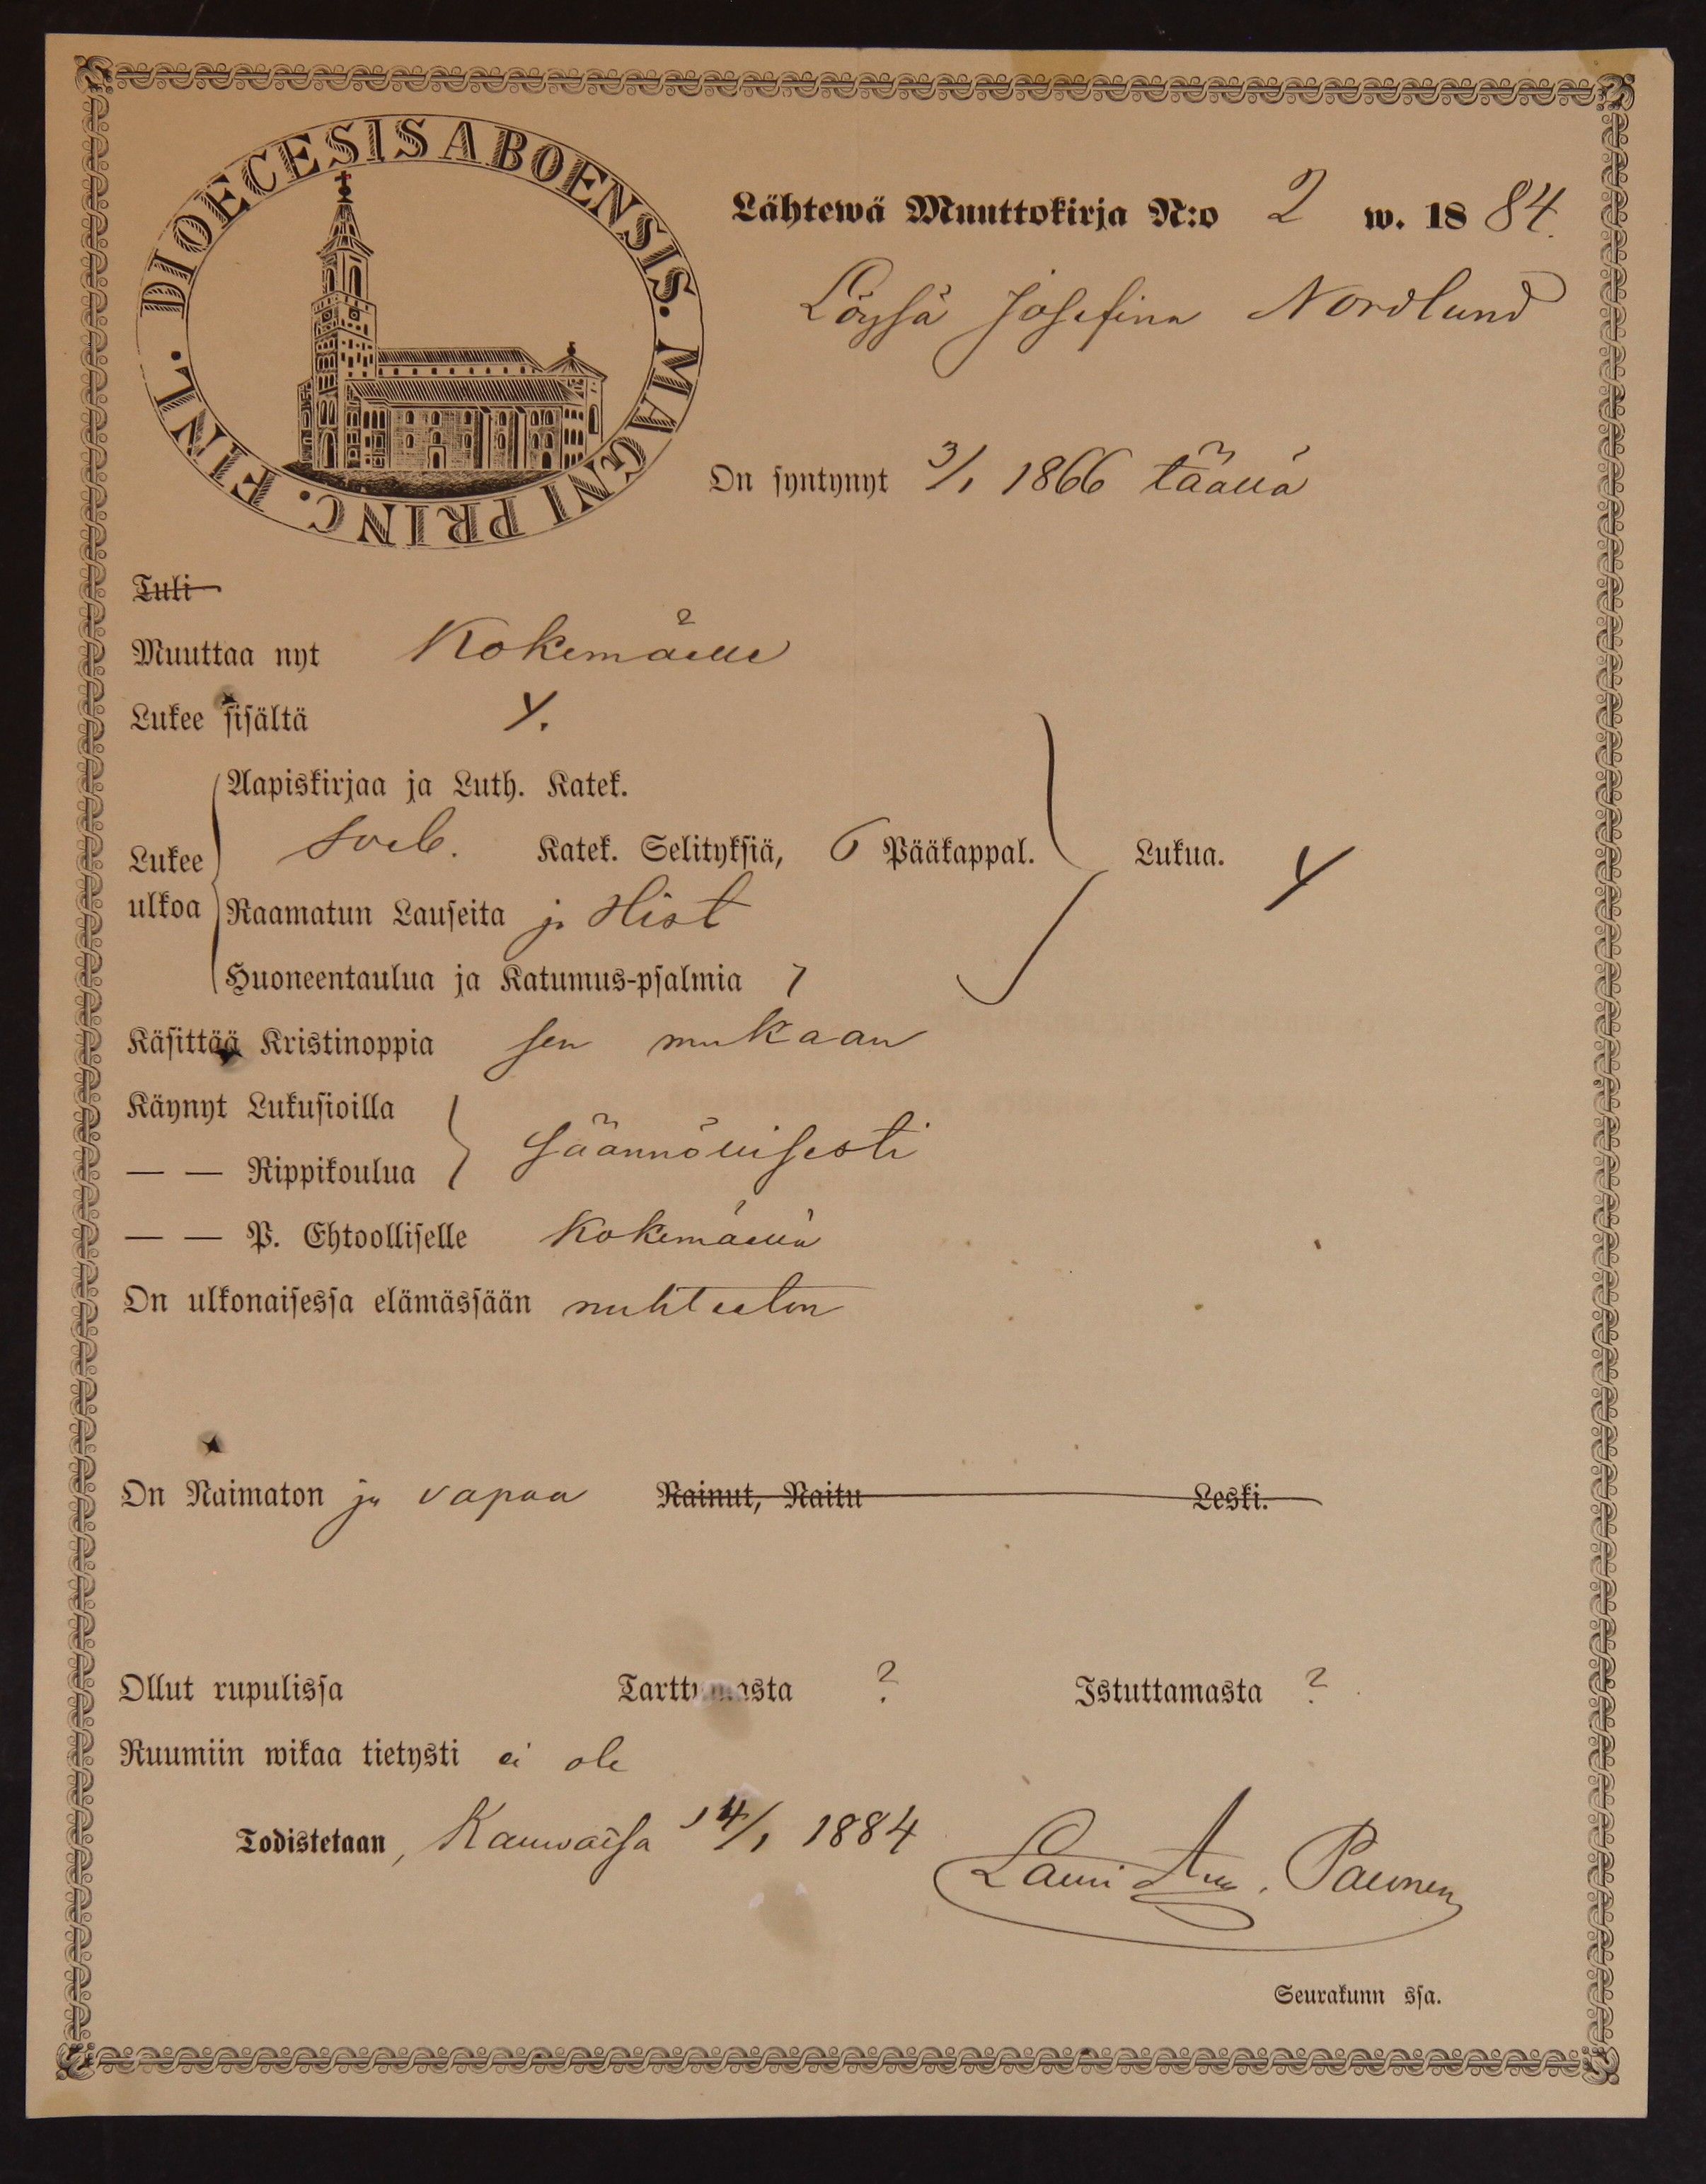 DIOECESIS ABOENSIS. MAGNI PRINC. FINL.
Lähtewä Muuttokirja N:o 2 w. 1884.
Löysä Josefina Nordlund
On syntynyt 3/1 1866 täällä
Tuli
Muuttaa nyt Kokemäelle
Lukee sisältä Y.
Aapiskirjaa ja Luth. Katek.
Lukee ulkoa Sveb. Katek. Selityksiä, 6 Pääkappal. Lukua. Y
Raamatun Lauseita ja Hist
Huoneentaulua ja Katumus-psalmia 7
Käsittää Kristinoppia sen mukaan
Käynyt Lukusioilla
— — Rippikoulua säännöllisesti
— — P. Ehtoolliselle Kokemäellä
On ulkonaisessa elämässään nuhteeton
On Naimaton ja vapaa Nainut, Naitu Leski.
Ollut rupulissa Tarttumasta ? Istuttamasta ?
Ruumiin wikaa tietysti ei ole
Todistetaan, Kauvatsa 14/1 1884 Lauri Aug. Paunen
Seurakunn ssa.